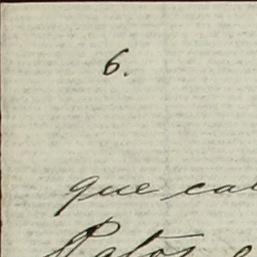 6.
que
Patos